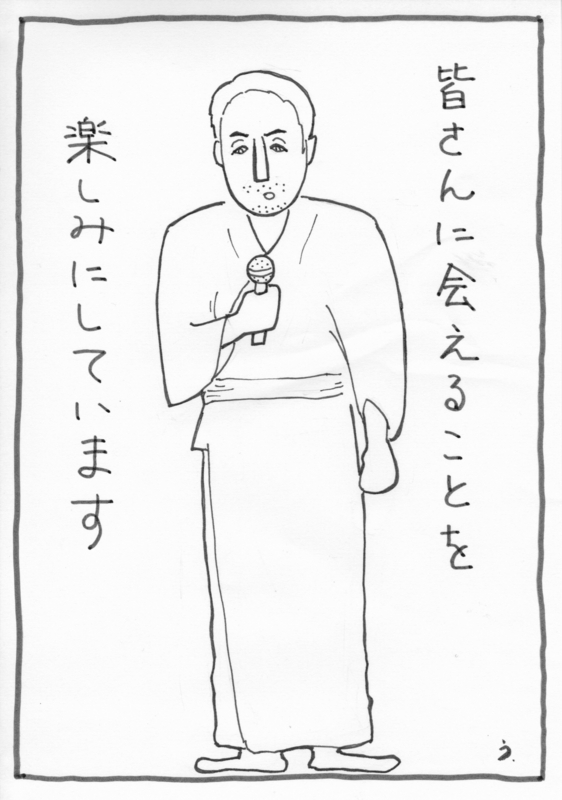 皆さんに会えることを
楽しみにしています
う.